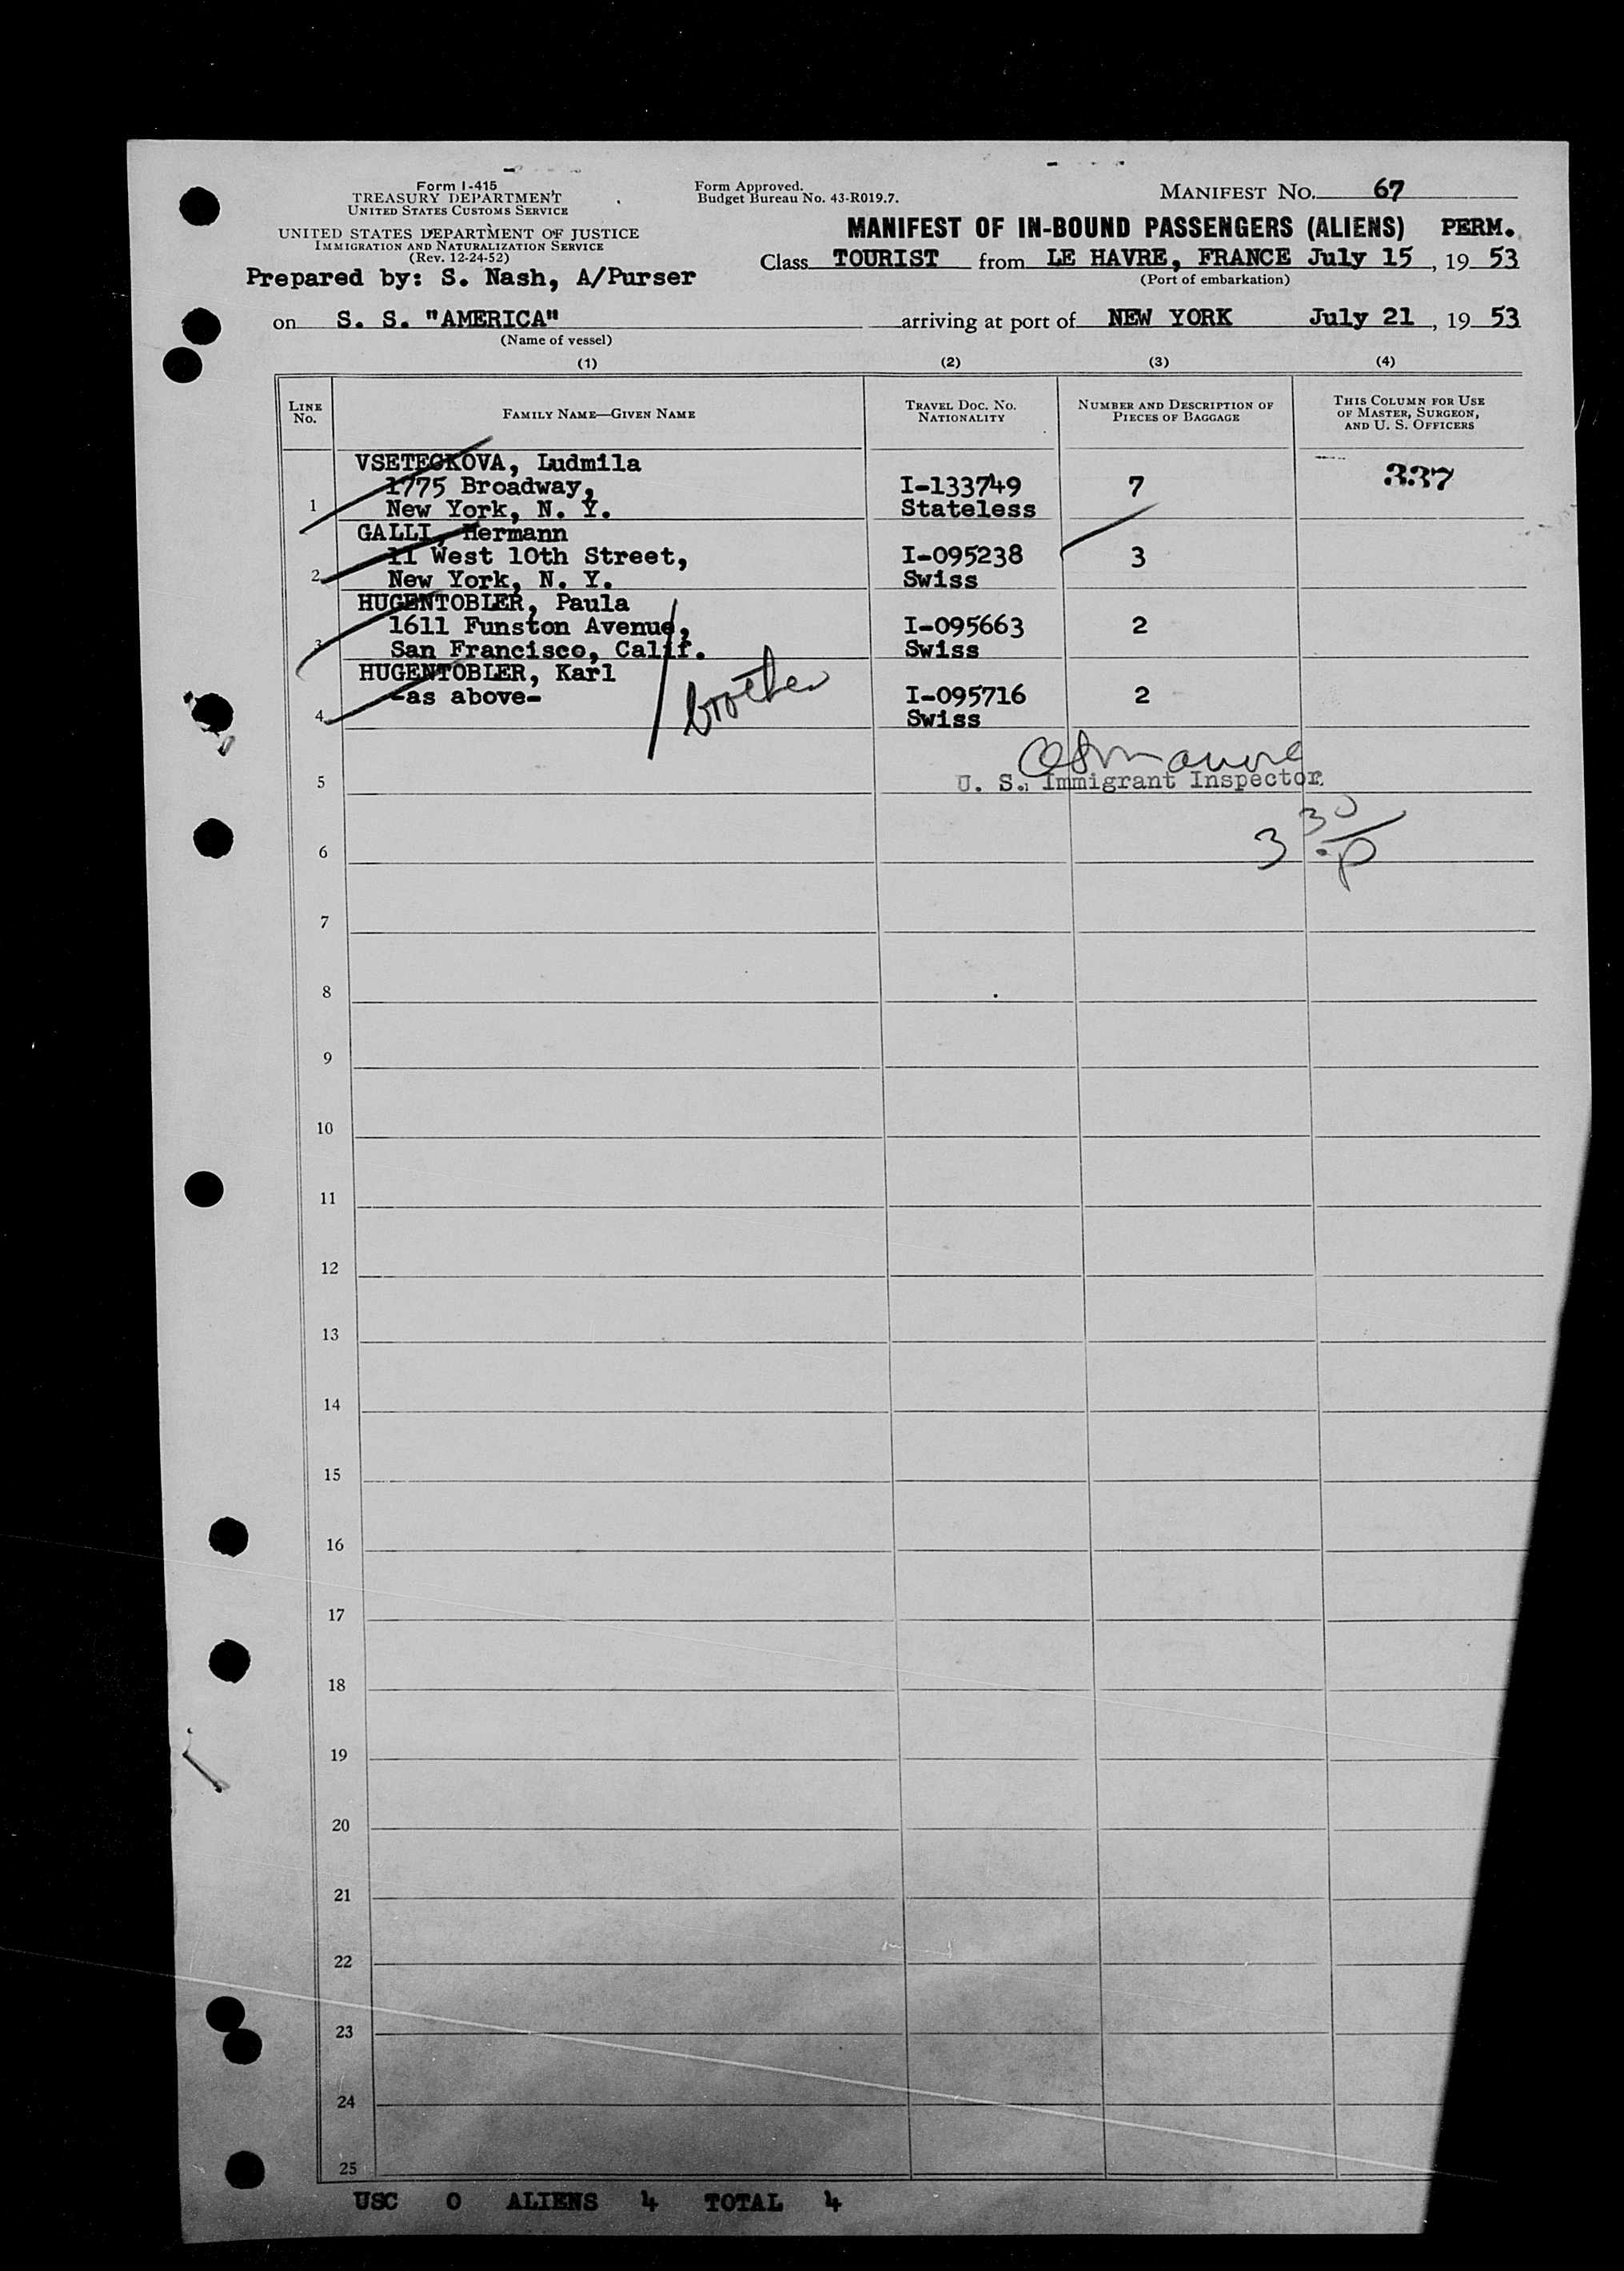 Form I-415
TREASURY DEPARTMENT
UNITED STATES CUSTOMS SERVICE
UNITED STATES DEPARTMENT OF JUSTICE
IMMIGRATION AND NATURALIZATION SERVICE
(Rev. 12-24-52)
Prepared by: S. Nash, A/Purser
Form Approved.
Budget Bureau No. 43-R019.7.
MANIFEST NO. 67
MANIFEST OF IN-BOUND PASSENGERS (ALIENS) PERM.
Class TOURIST from LE HAVRE, FRANCE July 15, 19 53
(Port of embarkation)
on S. S. "AMERICA" arriving at port of NEW YORK July 21, 19 53
(Name of vessel)
(1) (2) (3) (4)
LINE NO.
FAMILY NAME—GIVEN NAME
TRAVEL DOC. NO. NATIONALITY
NUMBER AND DESCRIPTION OF PIECES OF BAGGAGE
THIS COLUMN FOR USE OF MASTER, SURGEON, AND U. S. OFFICERS
VSETECKOVA, Ludmila
1775 Broadway, I-133749 7 337
1 New York, N. Y. Stateless
GALLI, Hermann
11 West 10th Street, I-095238 3
2 New York, N. Y. Swiss
HUGENTOBLER, Paula
1611 Funston Avenue, I-095663 2
3 San Francisco, Calif. Swiss
HUGENTOBLER, Karl
-as above- brother I-095716 2
4 Swiss
5 U. S. Immigrant Inspector
6 3 30 p
7
8
9
10
11
12
13
14
15
16
17
18
19
20
21
22
23
24
25
USC 0 ALIENS 4 TOTAL 4